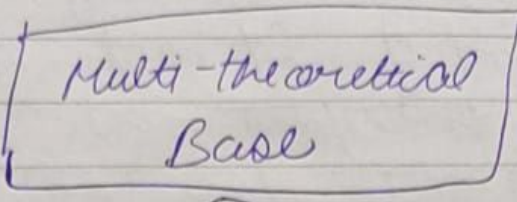 Multi-theoretical
Base